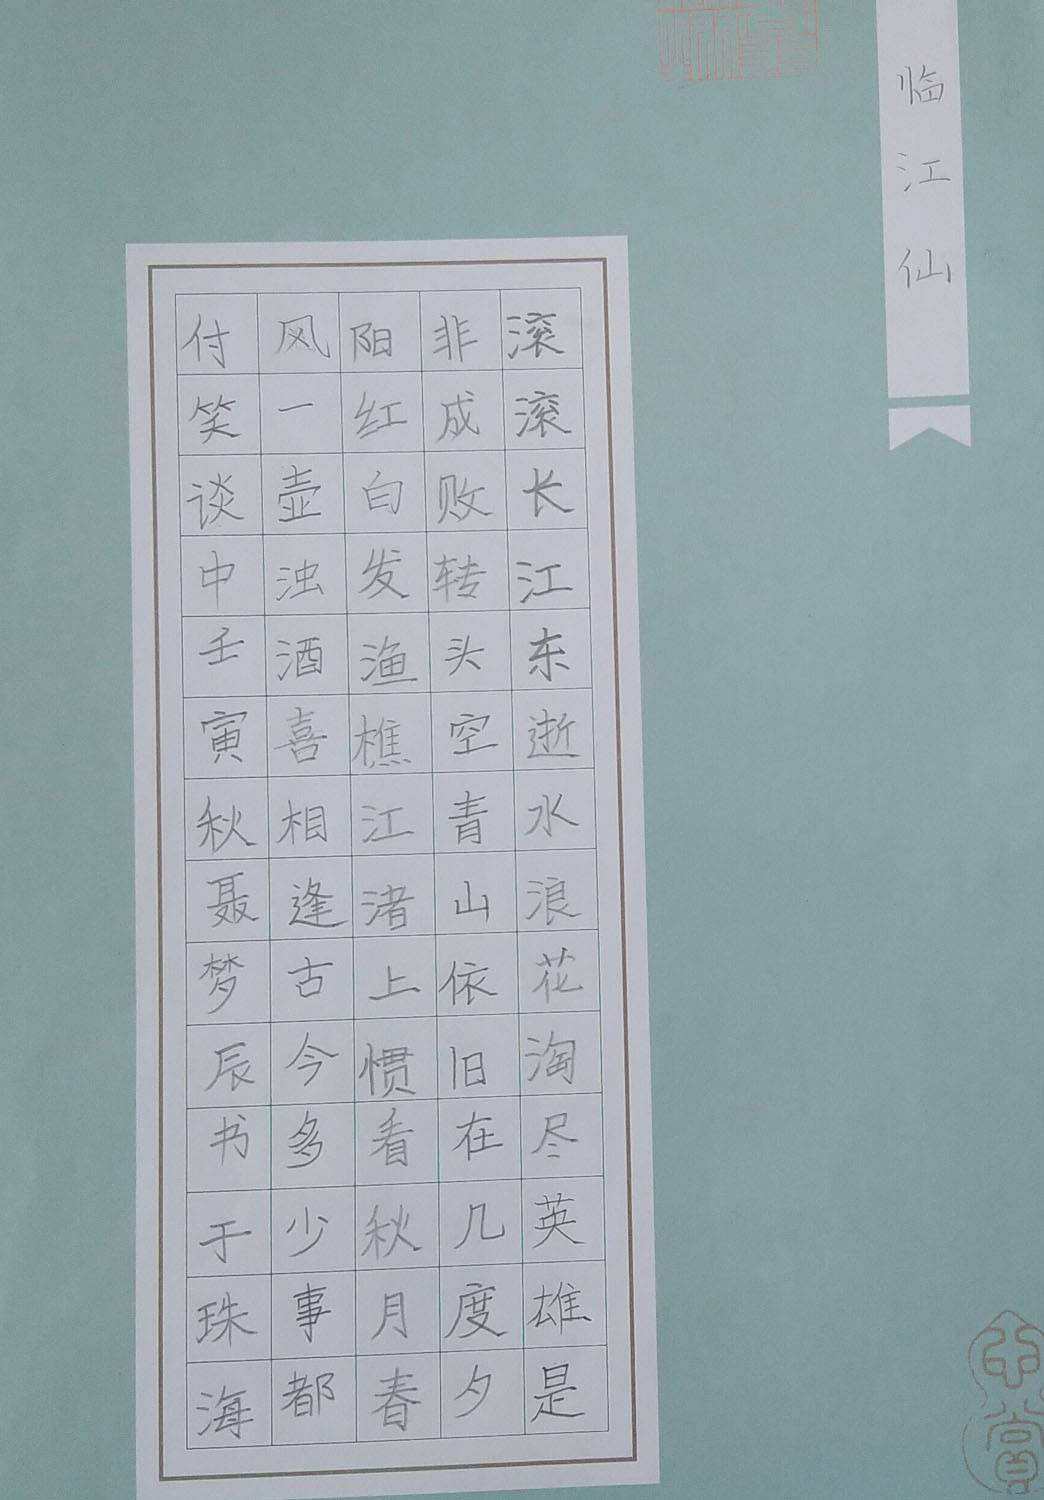 临江仙
滚滚长江东逝水浪花淘尽英雄是
非成败转头空青山依旧在几度夕
阳红白发渔樵江渚上惯看秋月春
风一壶浊酒喜相逢古今多少事都
付笑谈中壬寅秋聂梦辰书于珠海